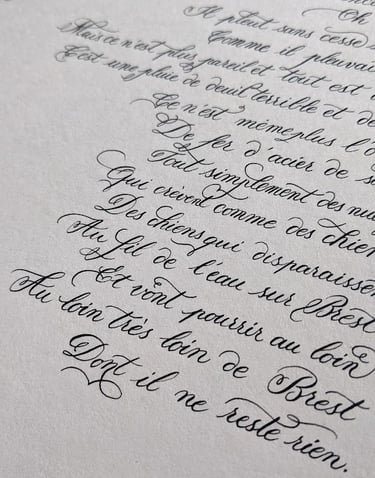 Oh
Il pleut sans cesse
Comme il pleuvait
Mais ce n'est plus pareil et tout est
C'est une pluie de deuil terrible et
Ce n'est même plus l'o
De fer d'acier de
Tout simplement des nua
Qui crèvent comme des chien
Des chiens qui disparaissen
Au fil de l'eau sur Brest
Et vont pourrir au loin
Au loin très loin de Brest
Dont il ne reste rien.